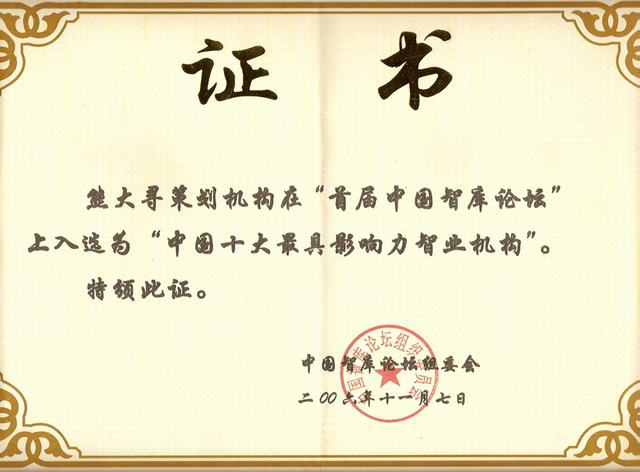 证 书
熊大寻策划机构在“首届中国智库论坛”
上入选为“中国十大最具影响力智业机构”。
特颁此证。
中国智库论坛组织委员会
中国智库论坛组委会
二00六年十一月七日